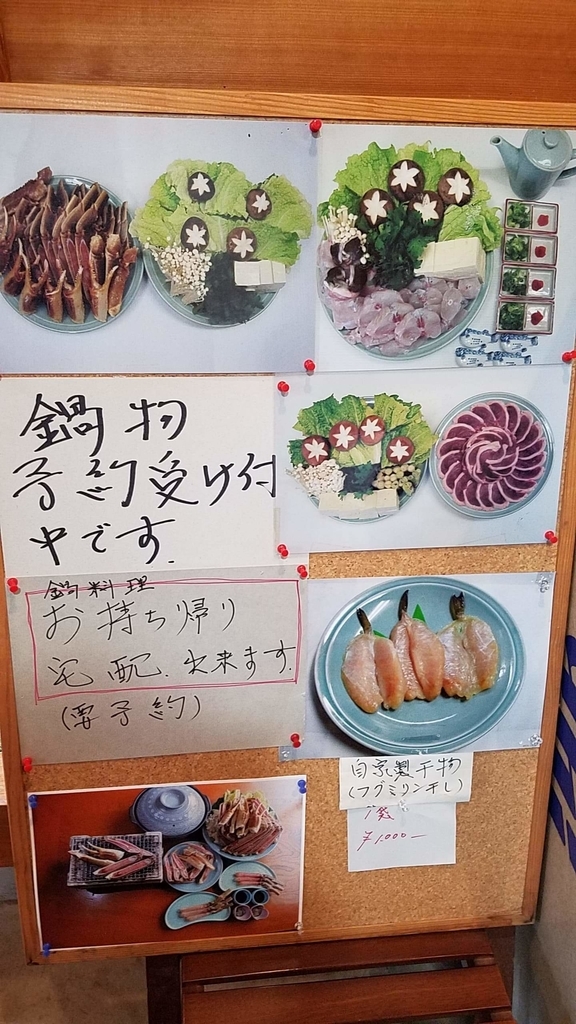 鍋物
予約受け付
中です.
鍋料理
お持ち帰り
宅配.出来ます.
(要予約)
自家製干物
(フグミリン干し)
¥1,000-